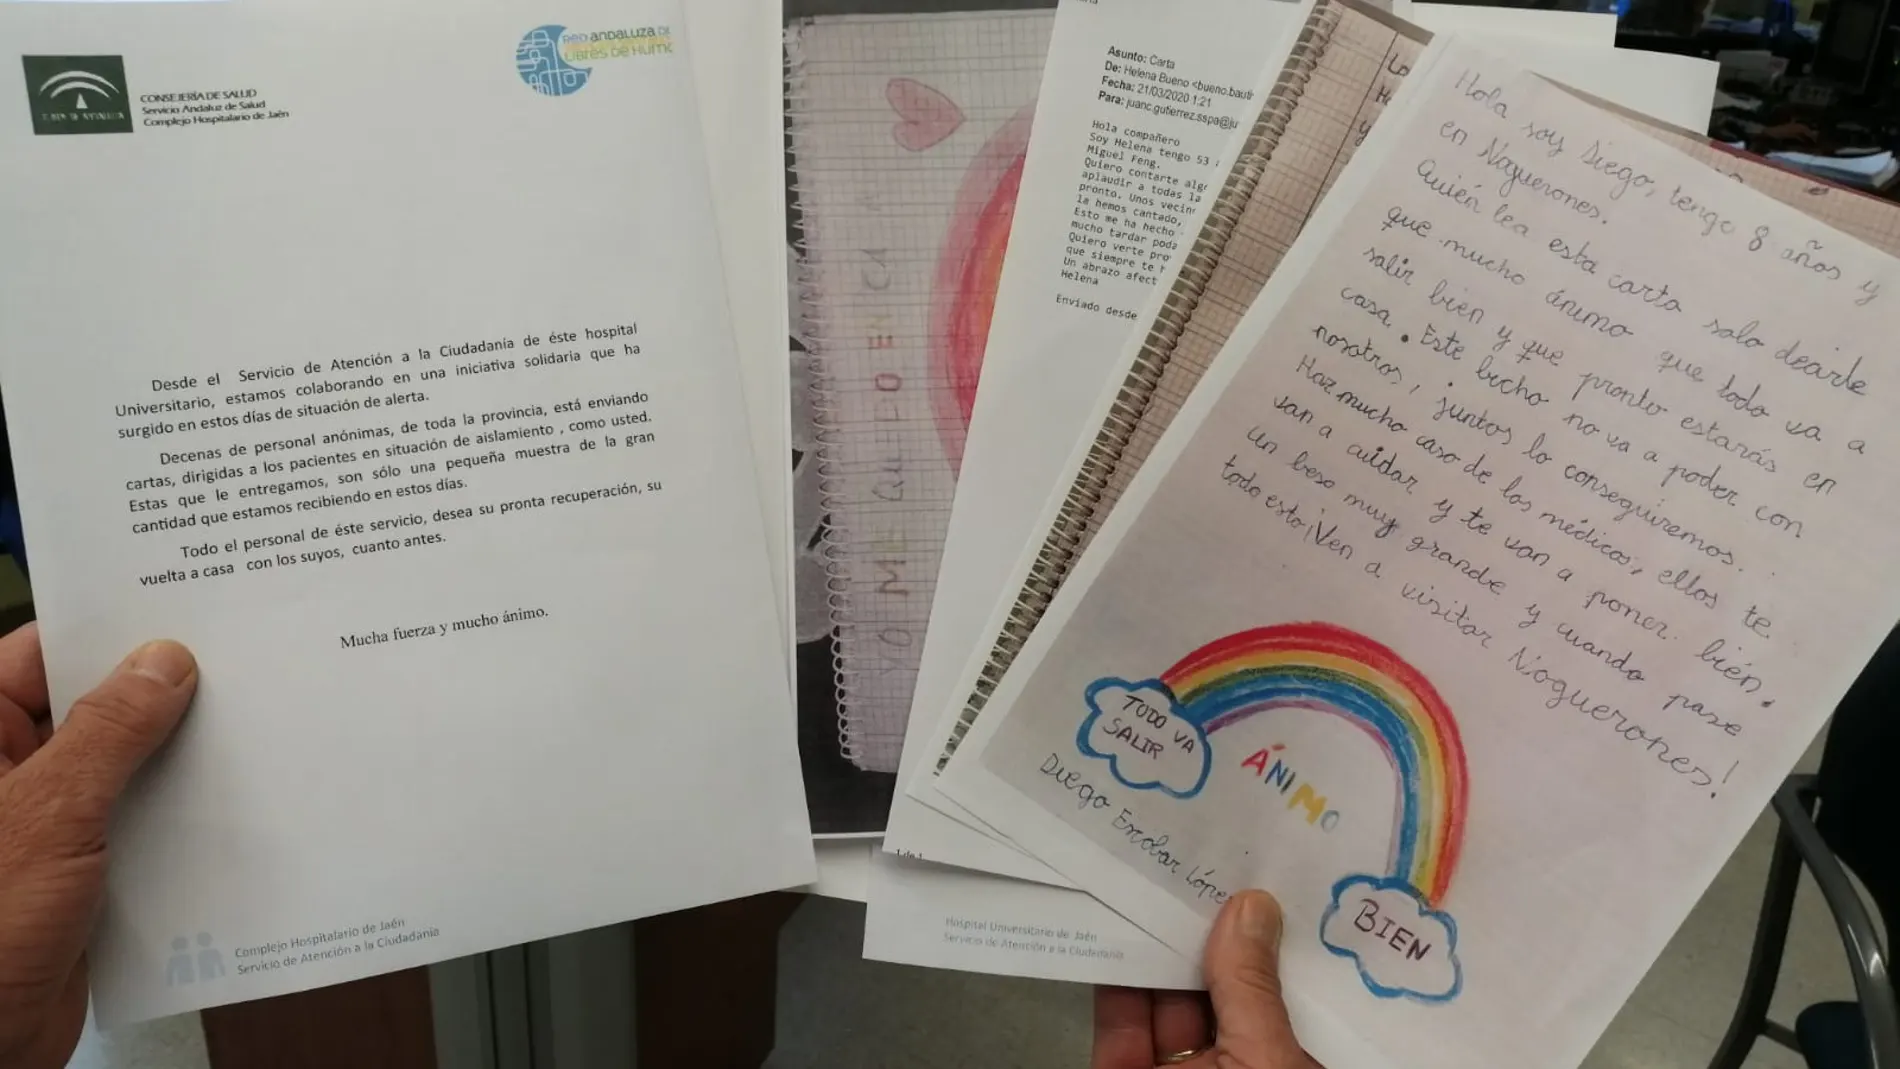 CONSEJERÍA DE SALUD
Servicio Andaluz de Salud
Complejo Hospitalario de Jaén
RED ANDALUZA DE
LIBRES DE HUMO
Desde el Servicio de Atención a la Ciudadanía de éste hospital
Universitario, estamos colaborando en una iniciativa solidaria que ha
surgido en estos días de situación de alerta.
Decenas de personal anónimas, de toda la provincia, está enviando
cartas, dirigidas a los pacientes en situación de aislamiento , como usted.
Estas que le entregamos, son sólo una pequeña muestra de la gran
cantidad que estamos recibiendo en estos días.
Todo el personal de éste servicio, desea su pronta recuperación, su
vuelta a casa con los suyos, cuanto antes.
Mucha fuerza y mucho ánimo.
Complejo Hospitalario de Jaén
Servicio de Atención a la Ciudadanía
YO ME QUEDO EN CA
Asunto: Carta
De: Helena Bueno <bueno.baut
Fecha: 21/03/2020 1:21
Para: juanc.gutierrez.sspa@ju
Hola compañero
Soy Helena tengo 53
Miguel Feng.
Quiero contarte alg
aplaudir a todas la
pronto. Unos vecin
la hemos cantado,
Esto me ha hecho
mucho tardar poda
Quiero verte pro
que siempre te h
Un abrazo afect
Helena
Enviado desde
1 de 1
Hospital Universitario de Jaén
Servicio de Atención a la Ciudadanía
Lo
Ha
y
Hola soy Diego, tengo 8 años y
en Noguerones.
Quién lea esta carta solo decirte
que mucho ánimo que todo va a
salir bien y que pronto estarás en
casa. Este bicho no va a poder con
nosotros, juntos lo conseguiremos.
Haz mucho caso de los médicos, ellos te
van a cuidar y te van a poner bién.
un beso muy grande y cuando pase
todo esto ¡Ven a visitar Noguerones!
TODO VA
SALIR
ÁNIMO
BIEN
Diego Escobar López